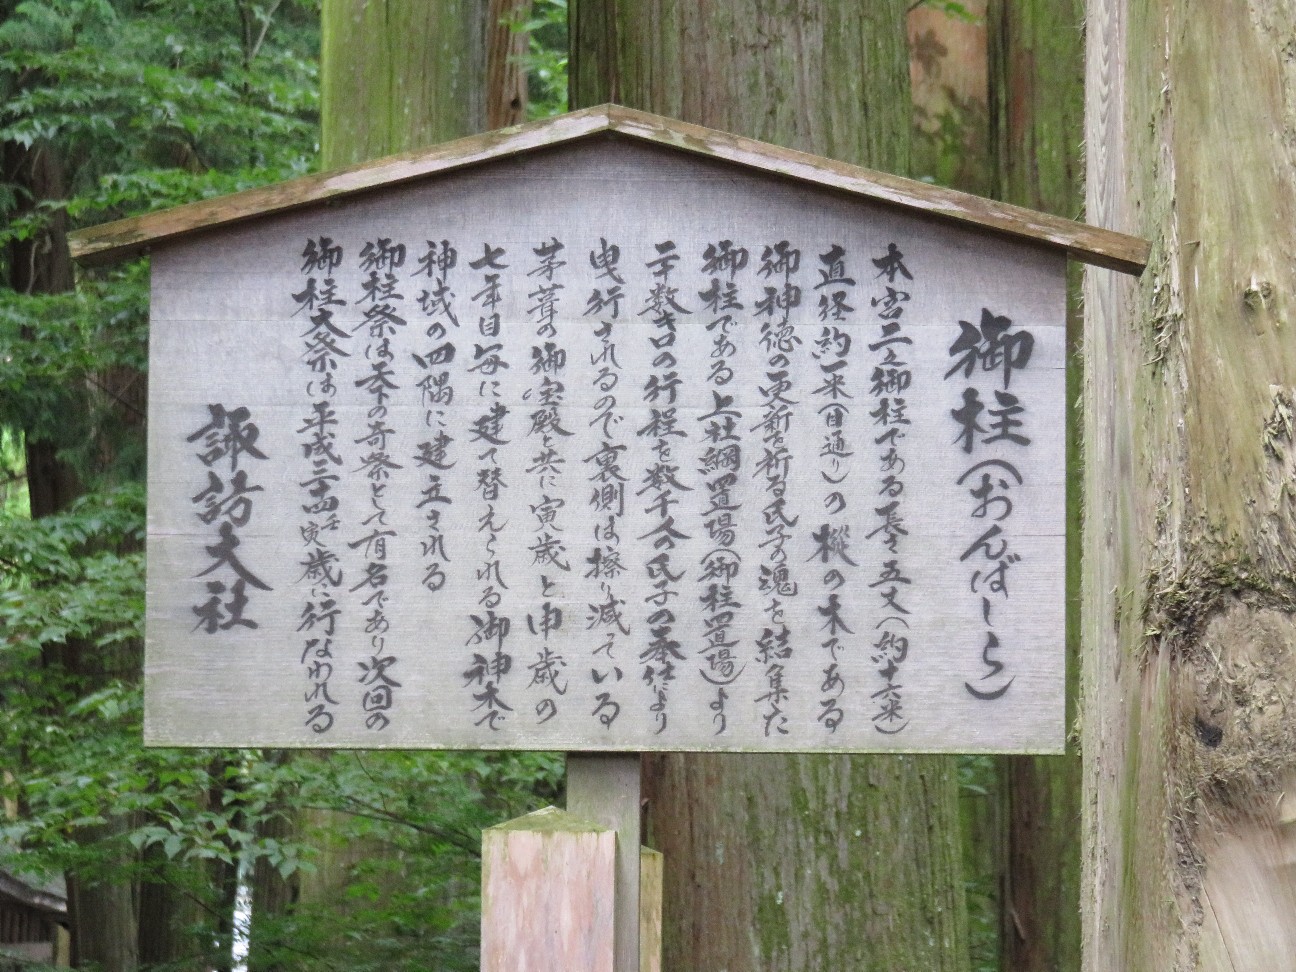 御柱(おんばしら)
本宮二之御柱である長さ五丈(約十六米)
直径約一米(目通り)の樅の木である
御神徳の更新を祈る氏子の魂を結集た
御柱である上社綱置場(御柱置場)より
二十数キロの行程を数千人の氏子の奉仕により
曳行されるので裏側は擦り減っている
茅葺の御宝殿と共に寅歳と申歳の
七年目毎に建て替えられる御神木で
神域の四隅に建立される
御柱祭は天下の奇祭として有名であり次回の
御柱大祭は平成三十四壬寅歳に行なわれる
諏訪大社